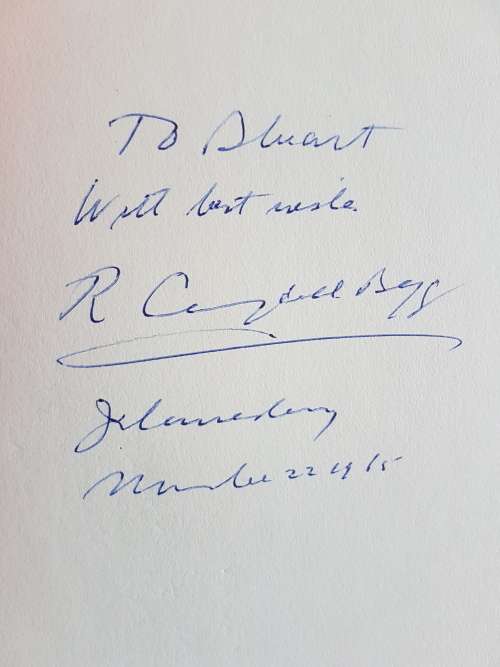 To Stuart
With best wishes
R Campbell Begg
Johannesburg
November 22 19